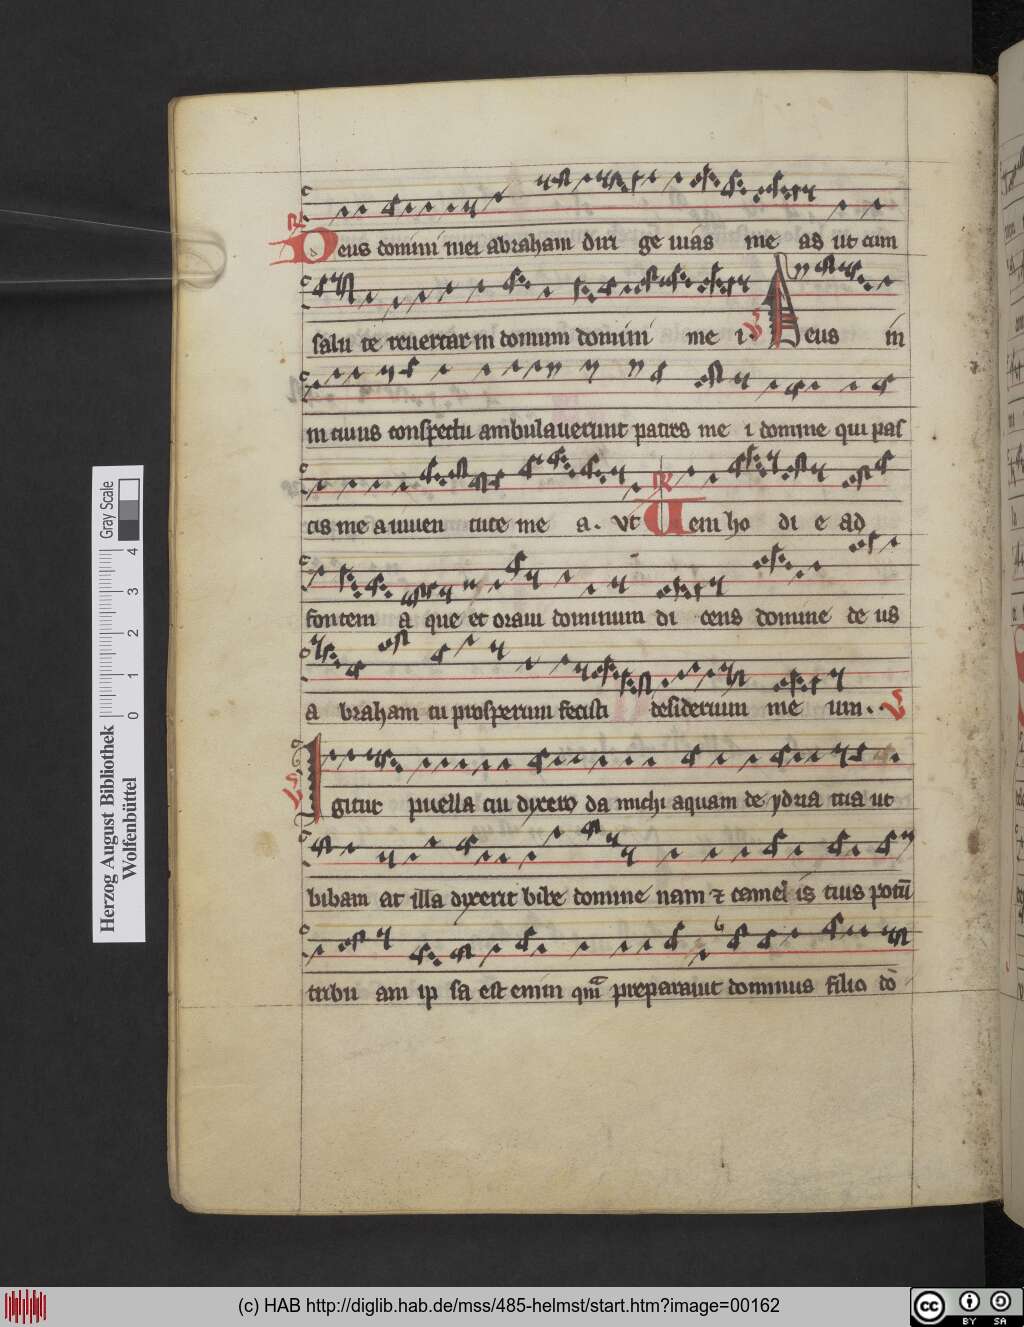 Deus domini mei abraham diri ge uias me as ut cum
salu te reuertar in domum domini me i. Deus in
in cuius conspectu ambulauerunt patres me i domine qui pas
cis me a iuuen tute me a. vt Veni ho di e ad
fontem a que et oraui dominum di cens domine de us
a braham tu prosperum fecisti desiderium me um.
Igitur puella cui dixero da michi aquam de ydria tua ut
bibam at illa dixerit bibe domine nam ⁊ camel is tuis potū
tribu am ip sa est enim qm̄ preparauit dominus filio dō
Gray Scale
0 1 2 3 4
Herzog August Bibliothek
Wolfenbüttel
(c) HAB http://diglib.hab.de/mss/485-helmst/start.htm?image=00162
cc BY SA